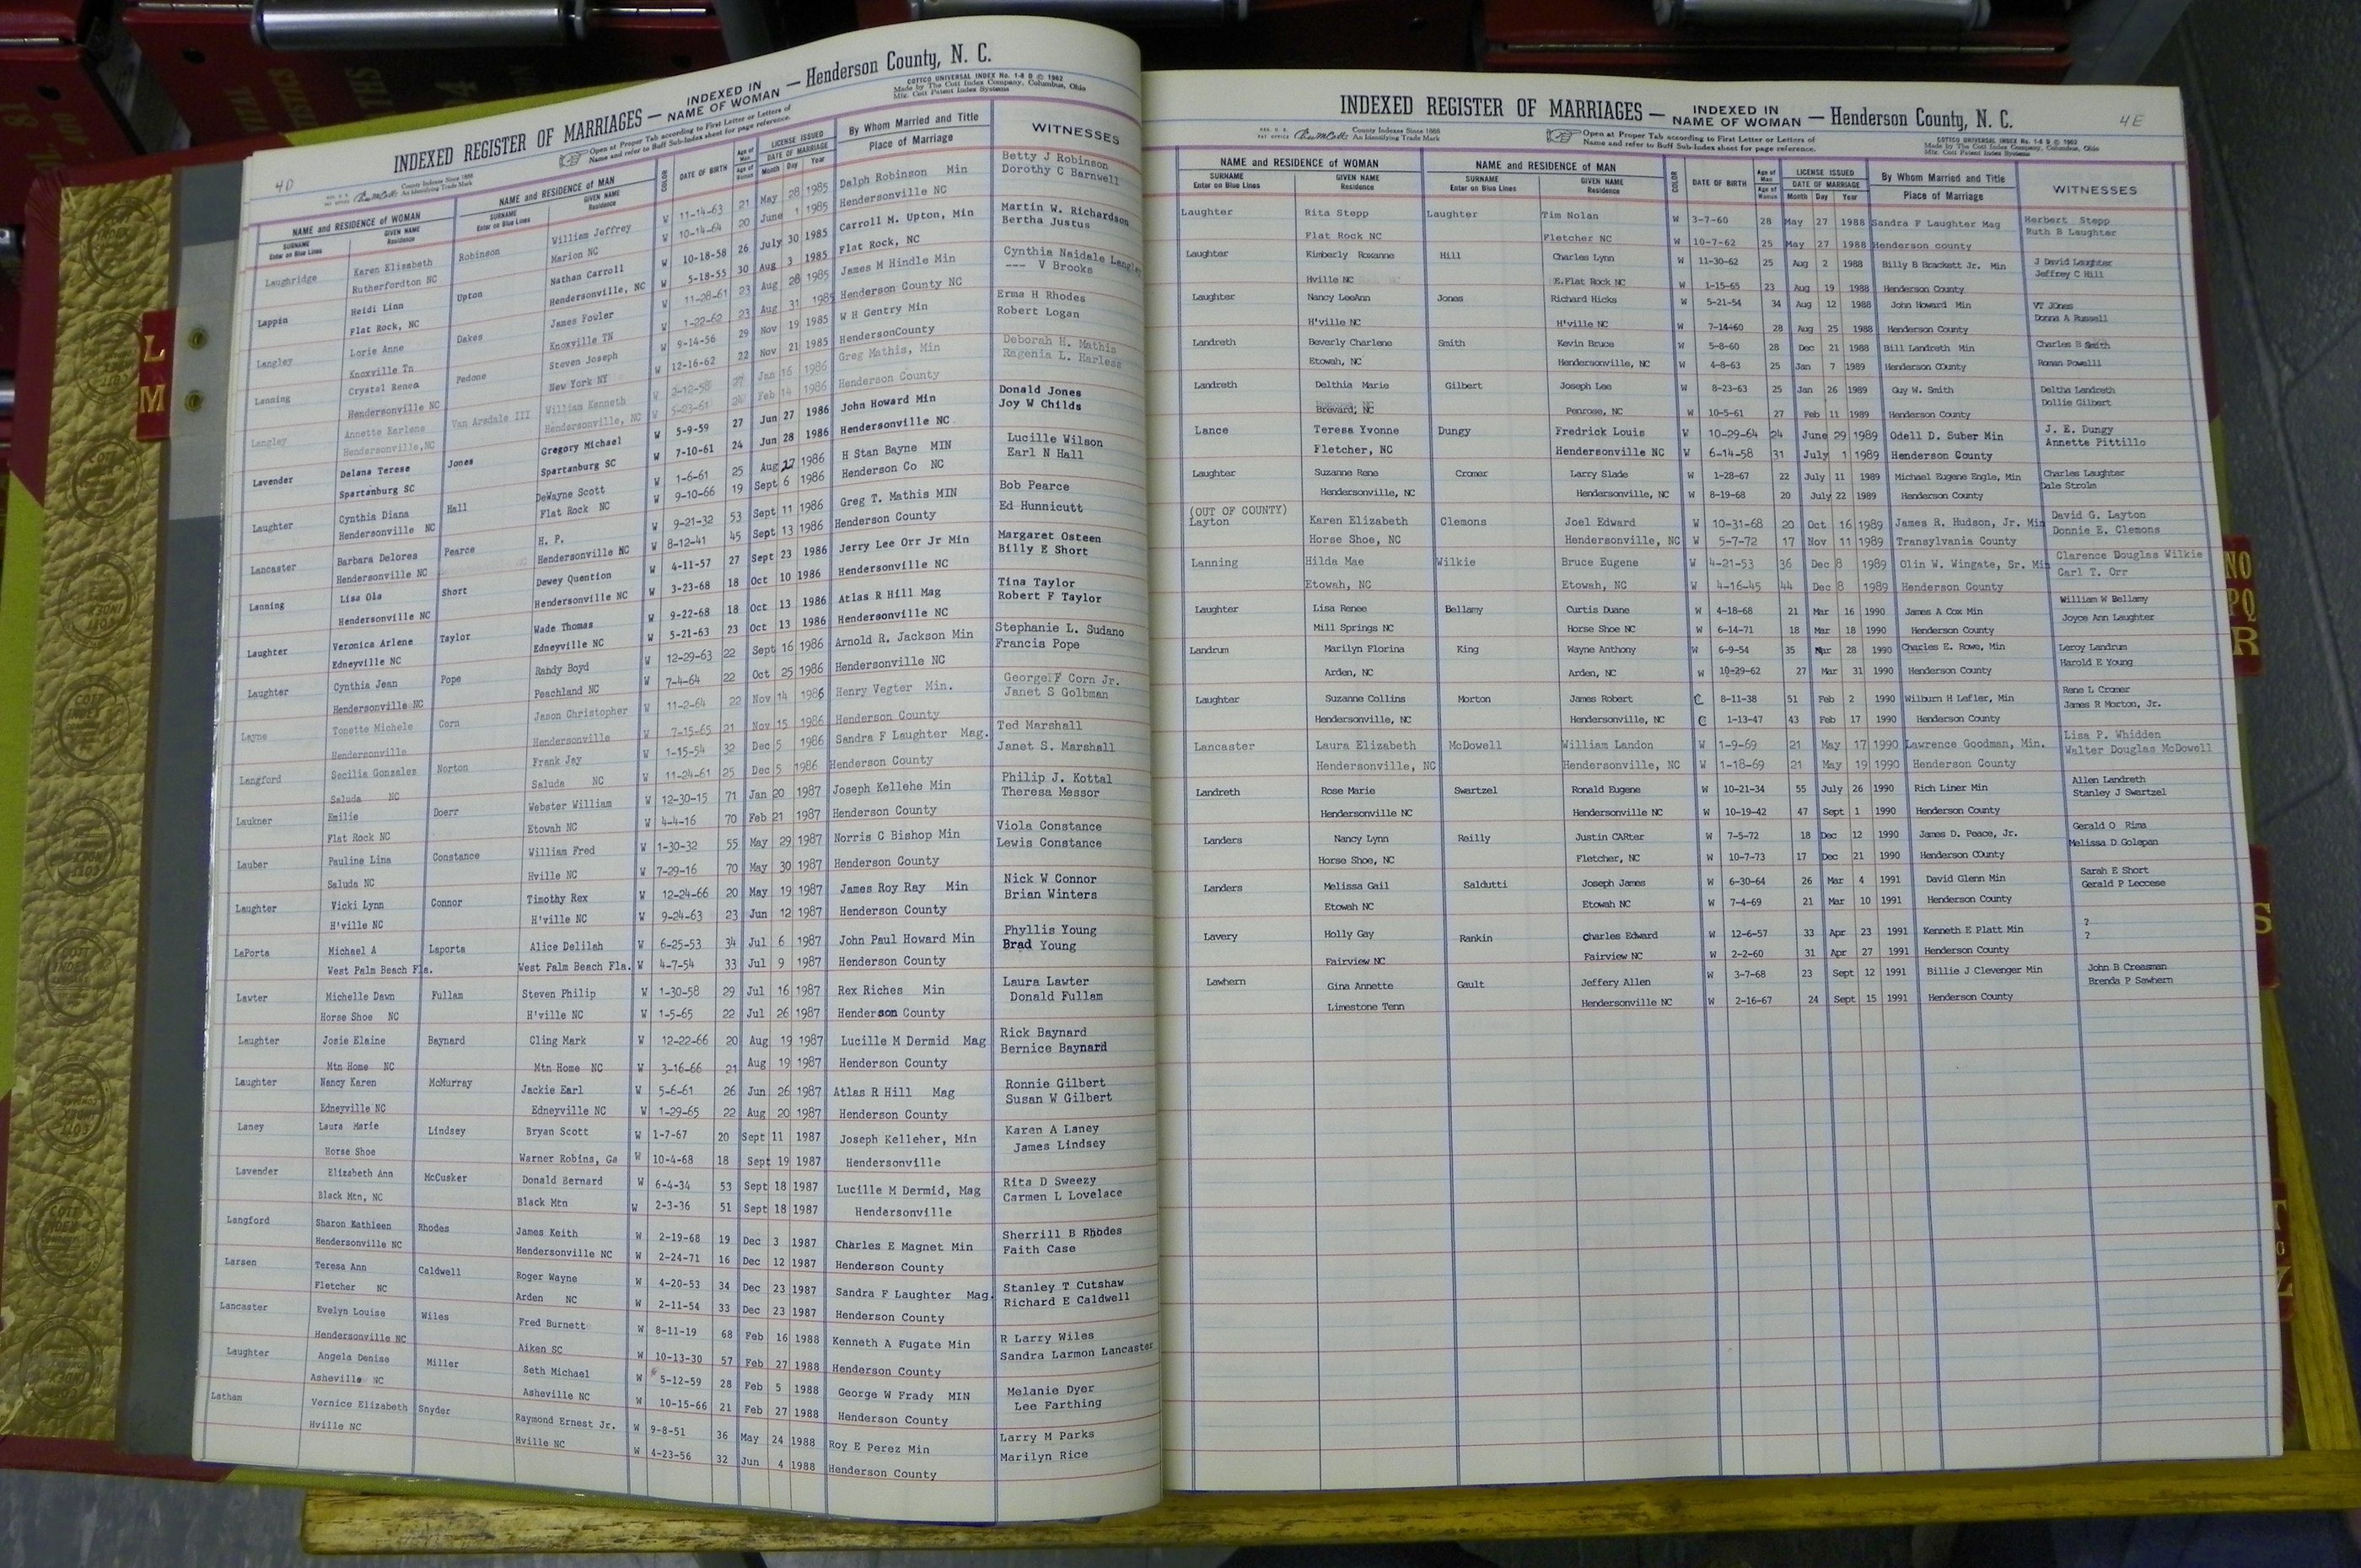 INDEXED REGISTER OF MARRIAGES — INDEXED IN NAME OF WOMAN — Henderson County, N. C.
COTTCO UNIVERSAL INDEX No. 1-8 D © 1962
Made by The Cott Index Company, Columbus, Ohio
Mfr. Cott Patent Index Systems
4D
County Indexes Since 1888
An Identifying Trade Mark
Open at Proper Tab according to First Letter or Letters of
Name and refer to Buff Sub-Index sheet for page reference.
NAME and RESIDENCE of WOMAN NAME and RESIDENCE of MAN COLOR DATE OF BIRTH Age of Man LICENSE ISSUED By Whom Married and Title WITNESSES
SURNAME GIVEN NAME SURNAME GIVEN NAME Age of Woman DATE OF MARRIAGE Place of Marriage
Enter on Blue Lines Residence Enter on Blue Lines Residence Month Day Year
Laughridge Karen Elizabeth Robinson William Jeffrey W 11-14-63 21 May 28 1985 Dalph Robinson Min Betty J Robinson
Rutherfordton NC Marion NC W 10-14-64 20 June 1 1985 Hendersonville NC Dorothy C Barnwell
Lappin Heidi Linn Upton Nathan Carroll W 10-18-58 26 July 30 1985 Carroll M. Upton, Min Martin W. Richardson
Flat Rock, NC Hendersonville, NC W 5-18-55 30 Aug 3 1985 Flat Rock, NC Bertha Justus
Langley Lorie Anne Oakes James Fowler W 11-28-61 23 Aug 28 1985 James M Hindle Min Cynthia Naidale Langley
Knoxville Tn Knoxville TN W 1-22-62 23 Aug 31 1985 Henderson County NC --- V Brooks
Lanning Crystal Renea Pedone Steven Joseph W 9-14-56 29 Nov 19 1985 W H Gentry Min Erma H Rhodes
Hendersonville NC New York NY W 12-16-62 22 Nov 21 1985 HendersonCounty Robert Logan
Langley Annette Earlene Van Arsdale III William Kenneth W 2-12-58 27 Jan 16 1986 Greg Mathis, Min Deborah H. Mathis
Hendersonville,NC Hendersonville, NC W 5-23-61 24 Feb 14 1986 Henderson County Ragenia L. Harless
Lavender Delana Terese Jones Gregory Michael W 5-9-59 27 Jun 27 1986 John Howard Min Donald Jones
Spartanburg SC Spartanburg SC W 7-10-61 24 Jun 28 1986 Hendersonville NC Joy W Childs
Laughter Cynthia Diana Hall DeWayne Scott W 1-6-61 25 Aug 27 1986 H Stan Bayne MIN Lucille Wilson
Hendersonville NC Flat Rock NC W 9-10-66 19 Sept 6 1986 Henderson Co NC Earl N Hall
Lancaster Barbara Delores Pearce H. P. W 9-21-32 53 Sept 11 1986 Greg T. Mathis MIN Bob Pearce
Hendersonville NC Hendersonville NC W 8-12-41 45 Sept 13 1986 Henderson County Ed Hunnicutt
Lanning Lisa Ola Short Dewey Quention W 4-11-57 27 Sept 23 1986 Jerry Lee Orr Jr Min Margaret Osteen
Hendersonville NC Hendersonville NC W 3-23-68 18 Oct 10 1986 Hendersonville NC Billy E Short
Laughter Veronica Arlene Taylor Wade Thomas W 9-22-68 18 Oct 13 1986 Atlas R Hill Mag Tina Taylor
Edneyville NC Edneyville NC W 5-21-63 23 Oct 13 1986 Hendersonville NC Robert F Taylor
Laughter Cynthia Jean Pope Randy Boyd W 12-29-63 22 Sept 16 1986 Arnold R. Jackson Min Stephanie L. Sudano
Hendersonville NC Peachland NC W 7-4-64 22 Oct 25 1986 Hendersonville NC Francis Pope
Layne Tonette Michele Corn Jason Christopher W 11-2-64 22 Nov 14 1986 Henry Vegter Min. George F Corn Jr.
Hendersonville Hendersonville W 7-15-65 21 Nov 15 1986 Henderson County Janet S Golbman
Langford Secilia Gonzalez Norton Frank Jay W 1-15-54 32 Dec 5 1986 Sandra F Laughter Mag. Ted Marshall
Saluda NC Saluda NC W 11-24-61 25 Dec 5 1986 Henderson County Janet S. Marshall
Laukner Emilie Doerr Webster William W 12-30-15 71 Jan 20 1987 Joseph Kellehe Min Philip J. Kottal
Flat Rock NC Etowah NC W 4-4-16 70 Feb 21 1987 Henderson County Theresa Messor
Lauber Pauline Lina Constance William Fred W 1-30-32 55 May 29 1987 Norris C Bishop Min Viola Constance
Saluda NC Hville NC W 7-29-16 70 May 30 1987 Henderson County Lewis Constance
Laughter Vicki Lynn Connor Timothy Rex W 12-24-66 20 May 19 1987 James Roy Ray Min Nick W Connor
H'ville NC H'ville NC W 9-24-63 23 Jun 12 1987 Henderson County Brian Winters
LaPorta Michael A Laporta Alice Delilah W 6-25-53 34 Jul 6 1987 John Paul Howard Min Phyllis Young
West Palm Beach Fla. West Palm Beach Fla. W 4-7-54 33 Jul 9 1987 Henderson County Brad Young
Lawter Michelle Dawn Fullam Steven Philip W 1-30-58 29 Jul 16 1987 Rex Riches Min Laura Lawter
Horse Shoe NC H'ville NC W 1-5-65 22 Jul 26 1987 Henderson County Donald Fullam
Laughter Josie Elaine Baynard Cling Mark W 12-22-66 20 Aug 19 1987 Lucille M Dermid Mag Rick Baynard
Mtn Home NC Mtn Home NC W 3-16-66 21 Aug 19 1987 Henderson County Bernice Baynard
Laughter Nancy Karen McMurray Jackie Earl W 5-6-61 26 Jun 26 1987 Atlas R Hill Mag Ronnie Gilbert
Edneyville NC Edneyville NC W 1-29-65 22 Aug 20 1987 Henderson County Susan W Gilbert
Laney Laura Marie Lindsey Bryan Scott W 1-7-67 20 Sept 11 1987 Joseph Kelleher, Min Karen A Laney
Horse Shoe Warner Robins, Ga W 10-4-68 18 Sept 19 1987 Hendersonville James Lindsey
Lavender Elizabeth Ann McCusker Donald Bernard W 6-4-34 53 Sept 18 1987 Lucille M Dermid, Mag Rita D Sweezy
Black Mtn, NC Black Mtn W 2-3-36 51 Sept 18 1987 Hendersonville Carmen L Lovelace
Langford Sharon Kathleen Rhodes James Keith W 2-19-68 19 Dec 3 1987 Charles E Magnet Min Sherrill B Rhodes
Hendersonville NC Hendersonville NC W 2-24-71 16 Dec 12 1987 Henderson County Faith Case
Larsen Teresa Ann Caldwell Roger Wayne W 4-20-53 34 Dec 23 1987 Sandra F Laughter Mag. Stanley T Cutshaw
Fletcher NC Arden NC W 2-11-54 33 Dec 23 1987 Henderson County Richard E Caldwell
Lancaster Evelyn Louise Wiles Fred Burnett W 8-11-19 68 Feb 16 1988 Kenneth A Fugate Min R Larry Wiles
Hendersonville NC Aiken SC W 10-13-30 57 Feb 27 1988 Henderson County Sandra Larmon Lancaster
Laughter Angela Denise Miller Seth Michael W 5-12-59 28 Feb 5 1988 George W Frady MIN Melanie Dyer
Asheville NC Asheville NC W 10-15-66 21 Feb 27 1988 Henderson County Lee Farthing
Latham Vernice Elizabeth Snyder Raymond Ernest Jr. W 9-8-51 36 May 24 1988 Roy E Perez Min Larry M Parks
Hville NC Hville NC W 4-23-56 32 Jun 4 1988 Henderson County Marilyn Rice
INDEXED REGISTER OF MARRIAGES — INDEXED IN NAME OF WOMAN — Henderson County, N. C.
4E
County Indexes Since 1888
An Identifying Trade Mark
Open at Proper Tab according to First Letter or Letters of
Name and refer to Buff Sub-Index sheet for page reference.
Made by The Cott Index Company, Columbus, Ohio
Mfr. Cott Patent Index Systems
NAME and RESIDENCE OF WOMAN NAME and RESIDENCE OF MAN COLOR DATE OF BIRTH Age of Man LICENSE ISSUED By Whom Married and Title WITNESSES
SURNAME GIVEN NAME SURNAME GIVEN NAME Age of Woman DATE OF MARRIAGE Place of Marriage
Enter on Blue Lines Residence Enter on Blue Lines Residence Month Day Year
Laughter Rita Stepp Laughter Tim Nolan W 3-7-60 28 May 27 1988 Sandra F Laughter Mag Herbert Stepp
Flat Rock NC Fletcher NC W 10-7-62 25 May 27 1988 Henderson county Ruth B Laughter
Laughter Kimberly Roxanne Hill Charles Lynn W 11-30-62 25 Aug 2 1988 Billy B Brackett Jr. Min J David Laughter
Hville NC E.Flat Rock NC W 1-15-65 23 Aug 19 1988 Henderson County Jeffrey C Hill
Laughter Nancy LeeAnn Jones Richard Hicks W 5-21-54 34 Aug 12 1988 John Howard Min VT Jones
H'ville NC H'ville NC W 7-14-60 28 Aug 25 1988 Henderson County Donna A Russell
Landreth Beverly Charlene Smith Kevin Bruce W 5-8-60 28 Dec 21 1988 Bill Landreth Min Charles B Smith
Etowah, NC Hendersonville, NC W 4-8-63 25 Jan 7 1989 Henderson County Roman Powelli
Landreth Delthia Marie Gilbert Joseph Lee W 8-23-63 25 Jan 26 1989 Guy W. Smith Deltha Landreth
Brevard, NC Penrose, NC W 10-5-61 27 Feb 11 1989 Henderson County Dollie Gilbert
Lance Teresa Yvonne Dungy Fredrick Louis W 10-29-64 24 June 29 1989 Odell D. Suber Min J. E. Dungy
Fletcher, NC Hendersonville NC W 6-14-58 31 July 1 1989 Henderson County Annette Pittillo
Laughter Suzanne Rene Cromer Larry Slade W 1-28-67 22 July 11 1989 Michael Eugene Engle, Min Charles Laughter
Hendersonville, NC Hendersonville, NC W 8-19-68 20 July 22 1989 Henderson County Dale Strolm
(OUT OF COUNTY)
Layton Karen Elizabeth Clemons Joel Edward W 10-31-68 20 Oct 16 1989 James R. Hudson, Jr. Min David G. Layton
Horse Shoe, NC Hendersonville, NC W 5-7-72 17 Nov 11 1989 Transylvania County Donnie E. Clemons
Lanning Hilda Mae Wilkie Bruce Eugene W 4-21-53 36 Dec 8 1989 Olin W. Wingate, Sr. Min Clarence Douglas Wilkie
Etowah, NC Etowah, NC W 4-16-45 44 Dec 8 1989 Henderson County Carl T. Orr
Laughter Lisa Renee Bellamy Curtis Duane W 4-18-68 21 Mar 16 1990 James A Cox Min William W Bellamy
Mill Springs NC Horse Shoe NC W 6-14-71 18 Mar 18 1990 Henderson County Joyce Ann Laughter
Landrum Marilyn Florina King Wayne Anthony W 6-9-54 35 Mar 28 1990 Charles E. Rowe, Min Leroy Landrum
Arden, NC Arden, NC W 10-29-62 27 Mar 31 1990 Henderson County Harold E Young
Laughter Suzanne Collins Morton James Robert C 8-11-38 51 Feb 2 1990 Wilburn H Lafler, Min Rene L Cromer
Hendersonville, NC Hendersonville, NC C 1-13-47 43 Feb 17 1990 Henderson County James R Morton, Jr.
Lancaster Laura Elizabeth McDowell William Landon W 1-9-69 21 May 17 1990 Lawrence Goodman, Min. Lisa P. Whidden
Hendersonville, NC Hendersonville, NC W 1-18-69 21 May 19 1990 Henderson County Walter Douglas McDowell
Landreth Rose Marie Swartzel Ronald Eugene W 10-21-34 55 July 26 1990 Rich Liner Min Allen Landreth
Hendersonville NC Hendersonville NC W 10-19-42 47 Sept 1 1990 Henderson County Stanley J Swartzel
Landers Nancy Lynn Reilly Justin CARter W 7-5-72 18 Dec 12 1990 James D. Peace, Jr. Gerald O Rima
Horse Shoe, NC Fletcher, NC W 10-7-73 17 Dec 21 1990 Henderson COunty Melissa D Golepan
Landers Melissa Gail Saldutti Joseph James W 6-30-64 26 Mar 4 1991 David Glenn Min Sarah E Short
Etowah NC Etowah NC W 7-4-69 21 Mar 10 1991 Henderson County Gerald P Leccese
Lavery Holly Gay Rankin Charles Edward W 12-6-57 33 Apr 23 1991 Kenneth E Platt Min ?
Fairview NC Fairview NC W 2-2-60 31 Apr 27 1991 Henderson County ?
Lawhern Gina Annette Gault Jeffery Allen W 3-7-68 23 Sept 12 1991 Billie J Clevenger Min John B Creasman
Limestone Tenn Hendersonville NC W 2-16-67 24 Sept 15 1991 Henderson County Brenda P Sawhern
L
M
NO
PQ
R
S